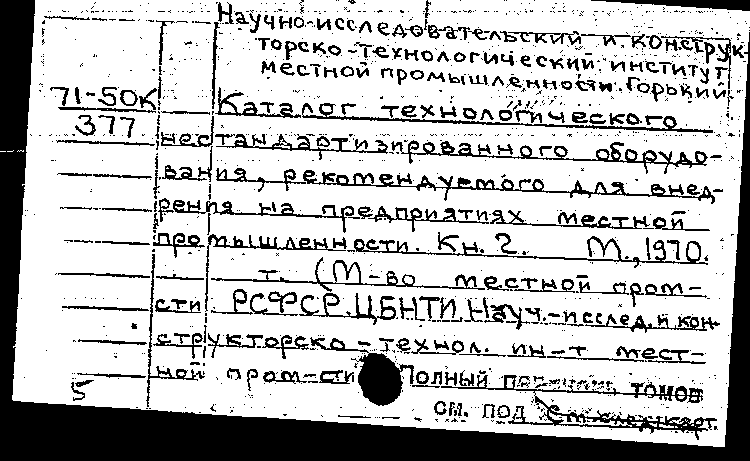 Научно-исследовательский и конструк-
торско-технологический институт
местной промышленности. Горький
71-50К
377
Каталог технологического
нестандартизированного оборудо-
вания, рекомендуемого для внед-
рения на предприятиях местной
промышленности. Кн. 2. М., 1970.
т. (М-во местной пром-
сти РСФСР. ЦБНТИ. Науч.-исслед. и кон-
структорско-технол. ин-т мест-
ной пром-сти
Полный перечень томов
см. под
5